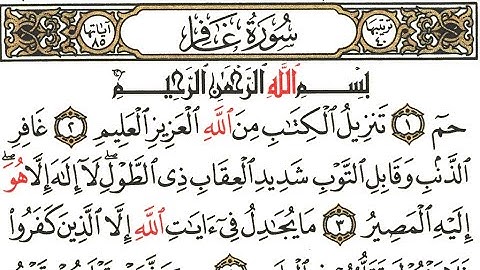 ترتيبها ٤٠ سُورَةُ غَافِرٍ آياتها ٨٥
بِسْمِ ٱللَّهِ ٱلرَّحْمَٰنِ ٱلرَّحِيمِ
حمٓ ١ تَنزِيلُ ٱلْكِتَٰبِ مِنَ ٱللَّهِ ٱلْعَزِيزِ ٱلْعَلِيمِ ٢ غَافِرِ
ٱلذَّنۢبِ وَقَابِلِ ٱلتَّوْبِ شَدِيدِ ٱلْعِقَابِ ذِى ٱلطَّوْلِۖ لَآ إِلَٰهَ إِلَّا هُوَۖ
إِلَيْهِ ٱلْمَصِيرُ ٣ مَا يُجَٰدِلُ فِىٓ ءَايَٰتِ ٱللَّهِ إِلَّا ٱلَّذِينَ كَفَرُوا۟